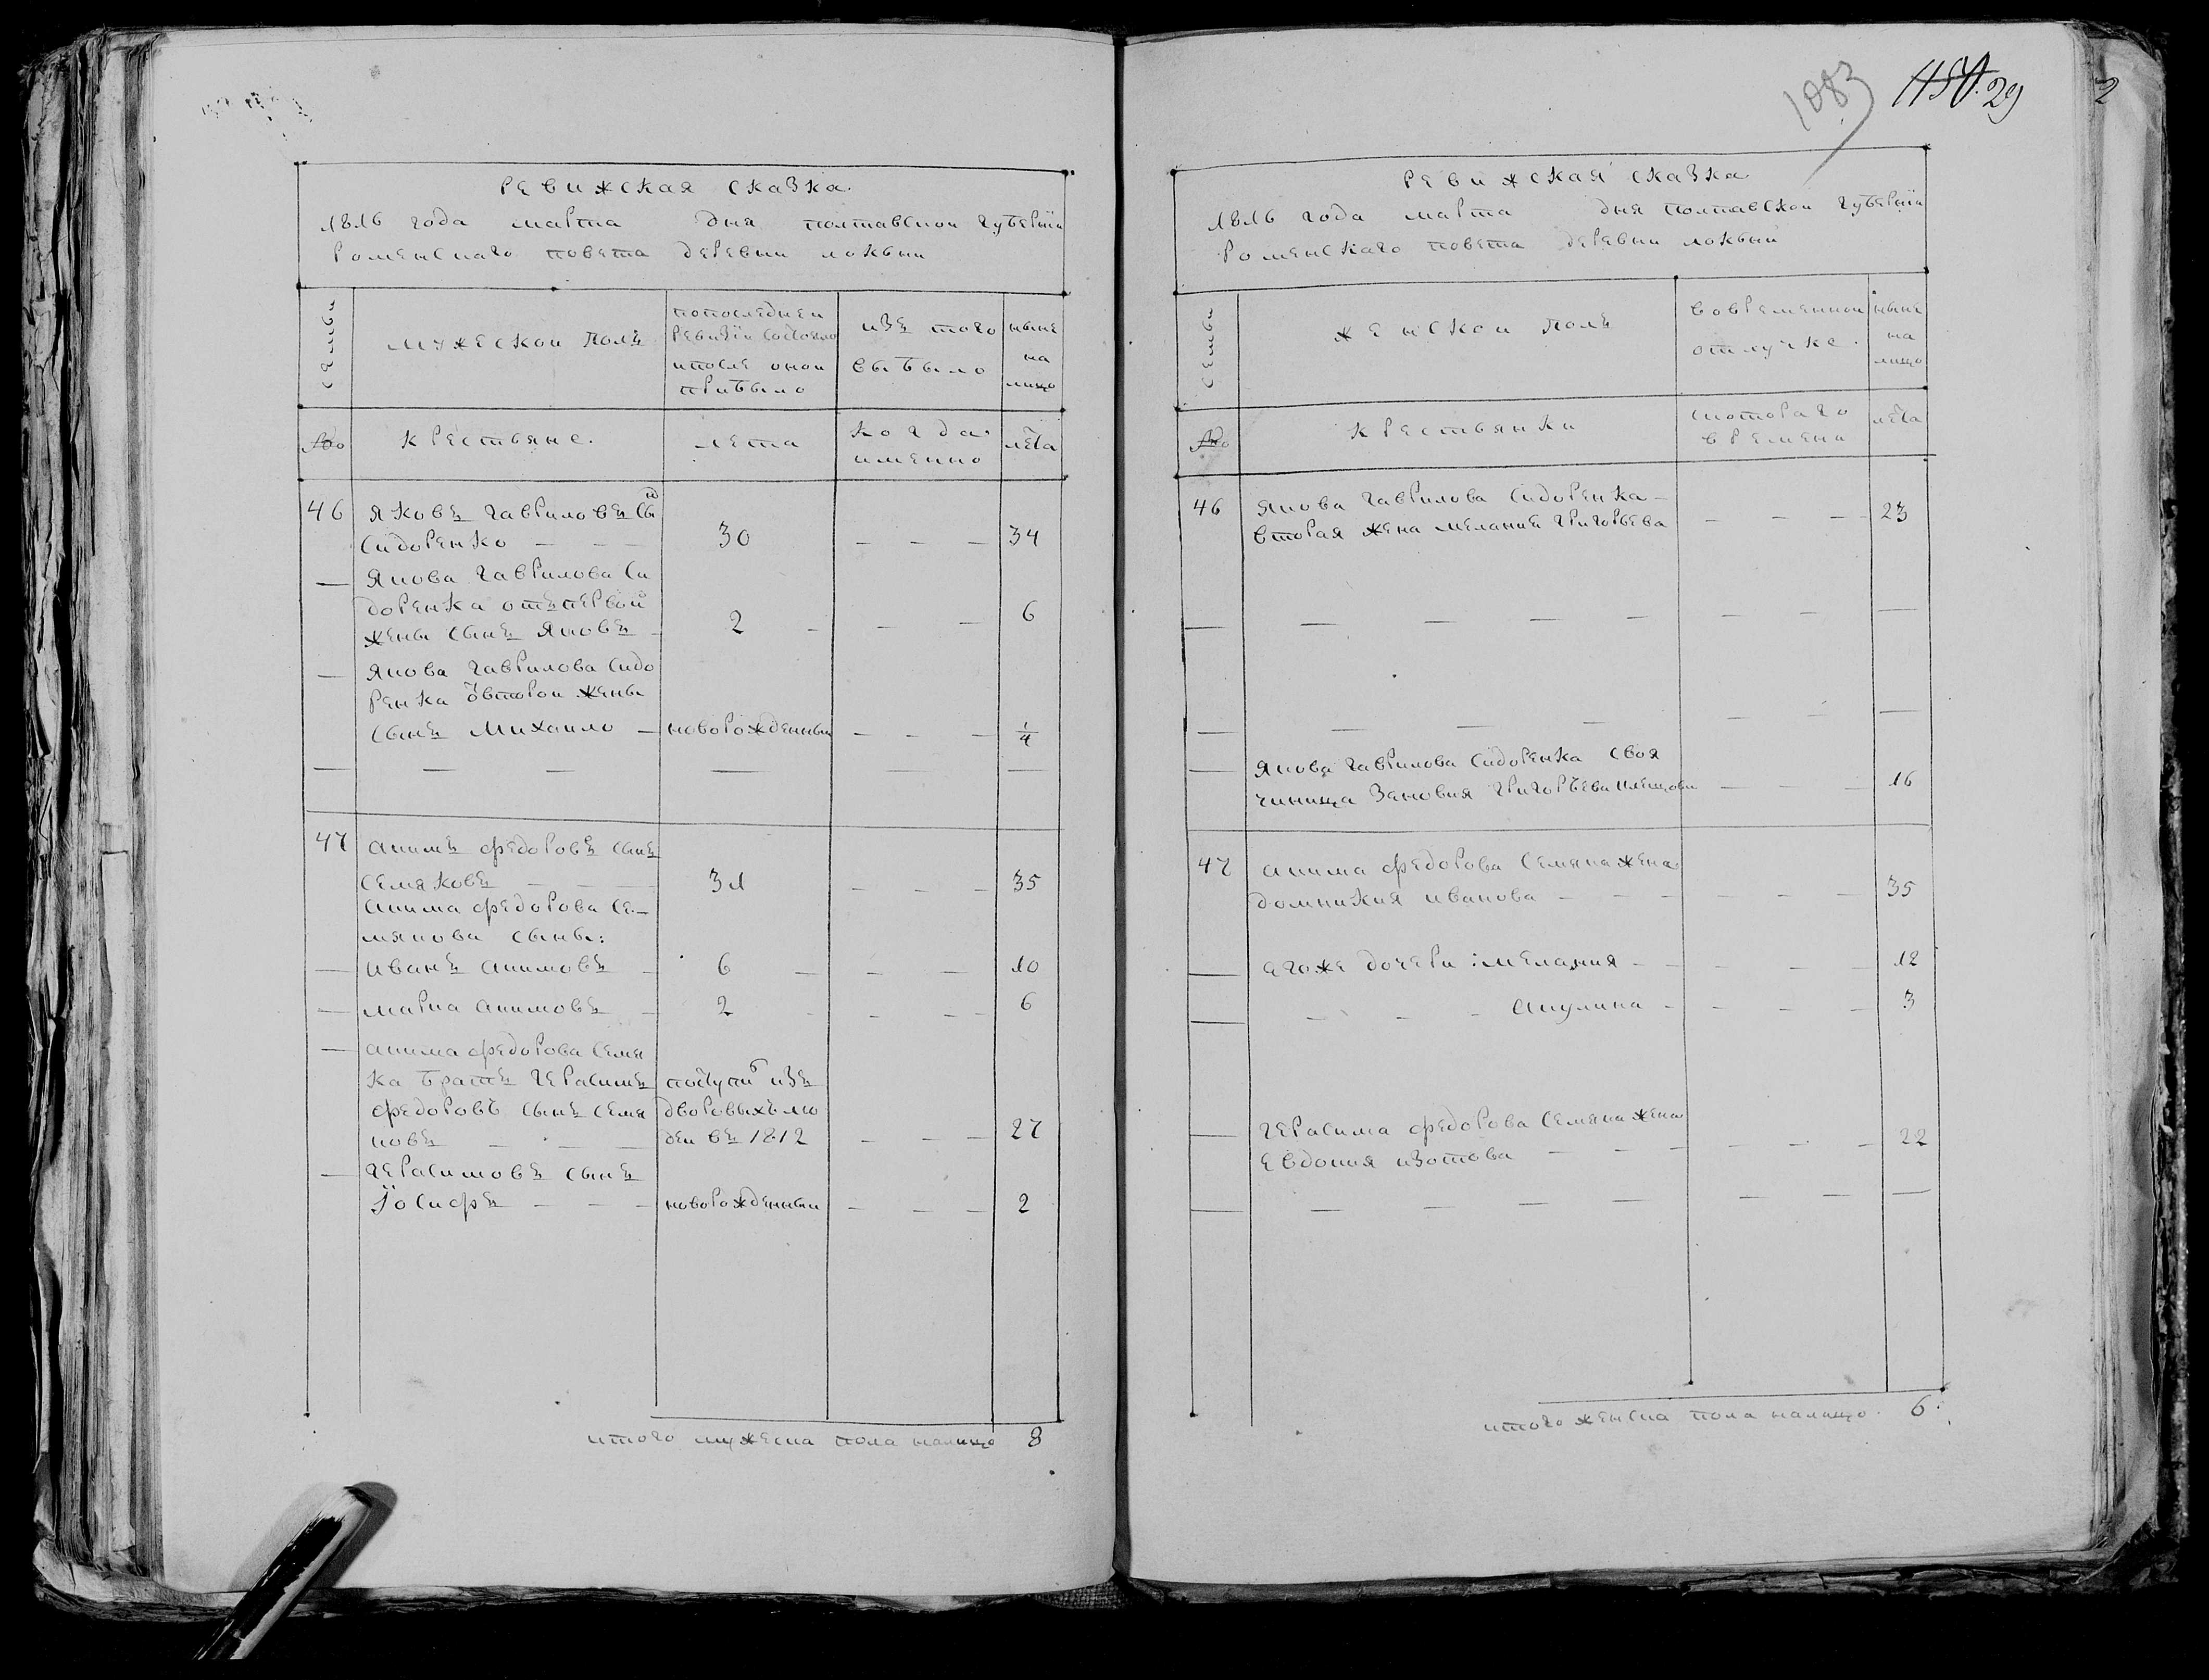 1083 29
ревижская сказка.
1816 года марта дня полтавской губернїи
роменскаго повета деревни локни
семьи
мужеской полъ
попоследней
ревизїи состояло
и после оной
прибыло
изъ того
выбыло
ныне
на
лицо
№
крестьяне.
лета
когда
именно
лета
46 яковъ гавриловъ сынъ
сидоренко — — — 30 — — — 34
— якова гаврилова си
доренка отъ первой
жены сынъ яковъ — 2 — — — 6
— якова гаврилова сидо
ренка от второй жены
сынъ михайло — новорожденный — — — 1/4
— — — — — —
47 акимъ федоровъ сынъ
семяковъ — — — 31 — — — 35
акима федорова се—
мякова сыны:
— иванъ акимовъ — 6 — — — 10
— марка акимовъ — 2 — — — 6
— акима федорова семя
ка братъ герасимъ поступи изъ
федоровъ сынъ семя дворовыхъ лю
ковъ — — — дей въ 1812 — — — 27
— герасимовъ сынъ
Їосифъ — — — новорожденный — — — 2
итого мужеска пола налицо 8
ревижская сказка
1816 года марта дня полтавской губернїи
роменскаго повета деревни локни
семьи
женской полъ
во временной
отлучке.
ныне
на
лицо
№
крестьянки
с которого
времени
лета
46 якова гаврилова сидоренка —
вторая жена мелания григорьева — — — 23
— — — — — — — —
— — — — — — —
— якова гаврилова сидоренка своя
чиница зановия григорьева — — — 16
47 акима федорова семяка жена
домникия иванова — — — — — — 35
— егоже дочери: мелания — — — — — 12
— — — — акулина — — — — 3
— герасима федорова семяка жена
евдокия изотова — — — — — — 22
— — — — — — — —
итого женска пола налицо. 6.